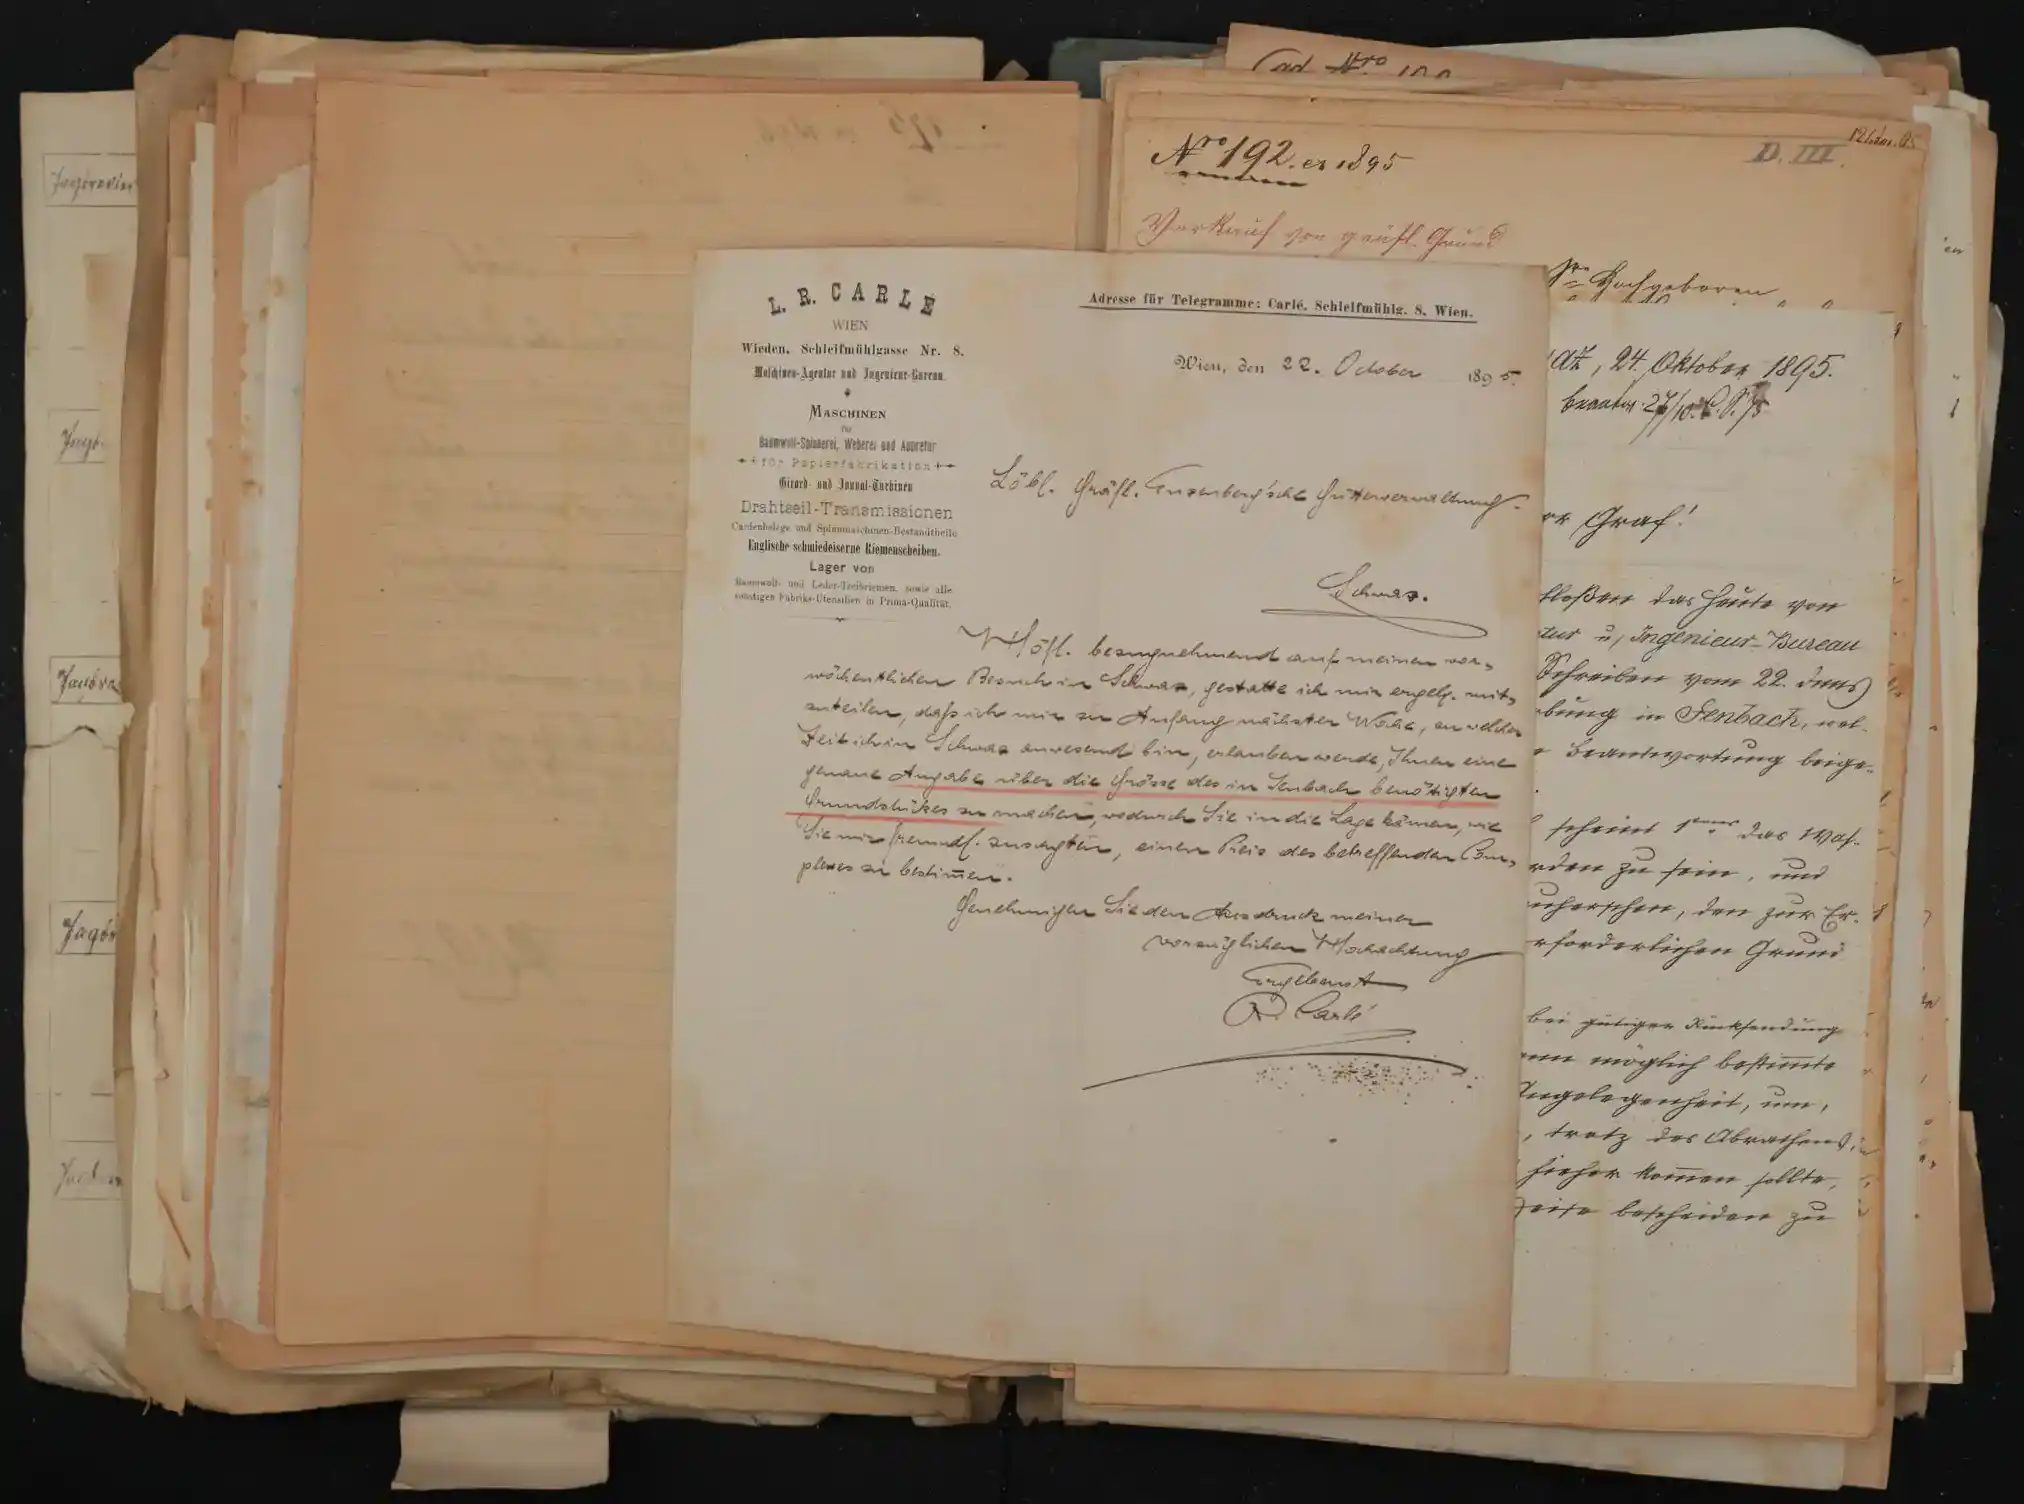 Cad. Nro 199
Nro 192. ex 1895
D. III.
Verkauf von gräfl. Grund
Hochgeboren
L. R. CARLÉ
WIEN
Wieden, Schleifmühlgasse Nr. 8.
Maschinen-Agentur und Ingenieur-Bureau.
MASCHINEN
für
Baumwoll-Spinnerei, Weberei und Appretur
für Papierfabrikation
Girard- und Jonval-Turbinen
Drahtseil-Transmissionen
Cardenbelege und Spinnmaschinen-Bestandtheile
Englische schmiedeiserne Riemenscheiben.
Lager von
Baumwoll- und Leder-Treibriemen, sowie alle
sonstigen Fabriks-Utensilien in Prima-Qualität.
Adresse für Telegramme: Carlé, Schleifmühlg. 8, Wien.
Wien, den 22. October 1895.
Löbl. Gräfl. Enzenberg'sche Gutsverwaltung.
Schwaz.
Höfl. bezugnehmend auf meinen vor-
wöchentlichen Besuch in Schwaz, gestatte ich mir ergeb. mit-
zuteilen, daß ich mir zu Anfang nächster Woche, zu welcher
Zeit ich in Schwaz anwesend bin, erlauben werde, Ihnen eine
genaue Angabe über die Grösse des in Jenbach benötigten
Grundstückes zu machen, wodurch Sie in die Lage kämen, wie
Sie mir freundl. zusagten, einen Preis des betreffenden Com-
plexes zu bestimmen.
Genehmigen Sie den Ausdruck meiner
vorzüglichen Hochachtung
Ergebenst
R. Carlé
az, 24. Oktober 1895.
Graf!
das heute von
tur u. Ingenieur-Bureau
Schreiben vom 22. dens
bung in Jenbach, wel-
Beantwortung beige-
scheint das Was-
rden zu sein, und
den zur Er-
rforderlichen Grund
bei gütiger Rücksendung
möglich bestimmte
Angelegenheit, um,
trotz des Abrathens
hieher kommen sollte,
weise bescheiden zu